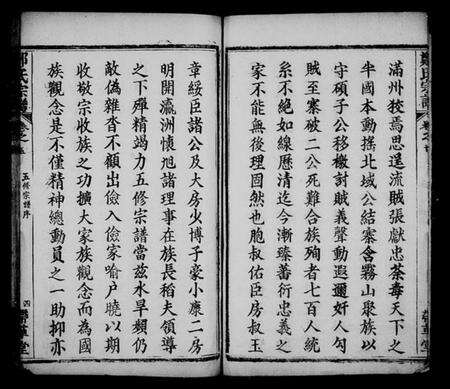 滿州狡焉思逞流賊張獻忠荼毒天下之
半國本動搖北域公結寨含霧山聚族以
守碩子公移檄討賊義聲動遐邇奸人勾
賊至寨破二公死難合族殉者七百人統
系不絕如線歷清迄今漸臻蕃衍忠義之
家不能無後理固然也胞叔佑臣房叔玉
章綬臣諸公及大房少博子豪小康二房
明開瀛洲懷旭諸理事在族長稻夫領導
之下殫精竭力五修宗譜當茲水旱頻仍
敵偽雜沓不顧出儉入儉家喻戶曉以期
收敬宗收族之功擴大家族觀念而為國
族觀念是不僅精神總動員之一助抑亦
氏宗譜
卷之
五修宗譜序
四
堂